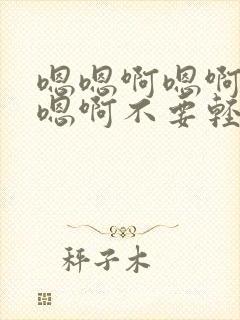 嗯嗯啊嗯啊
嗯啊不要轻
秤子木